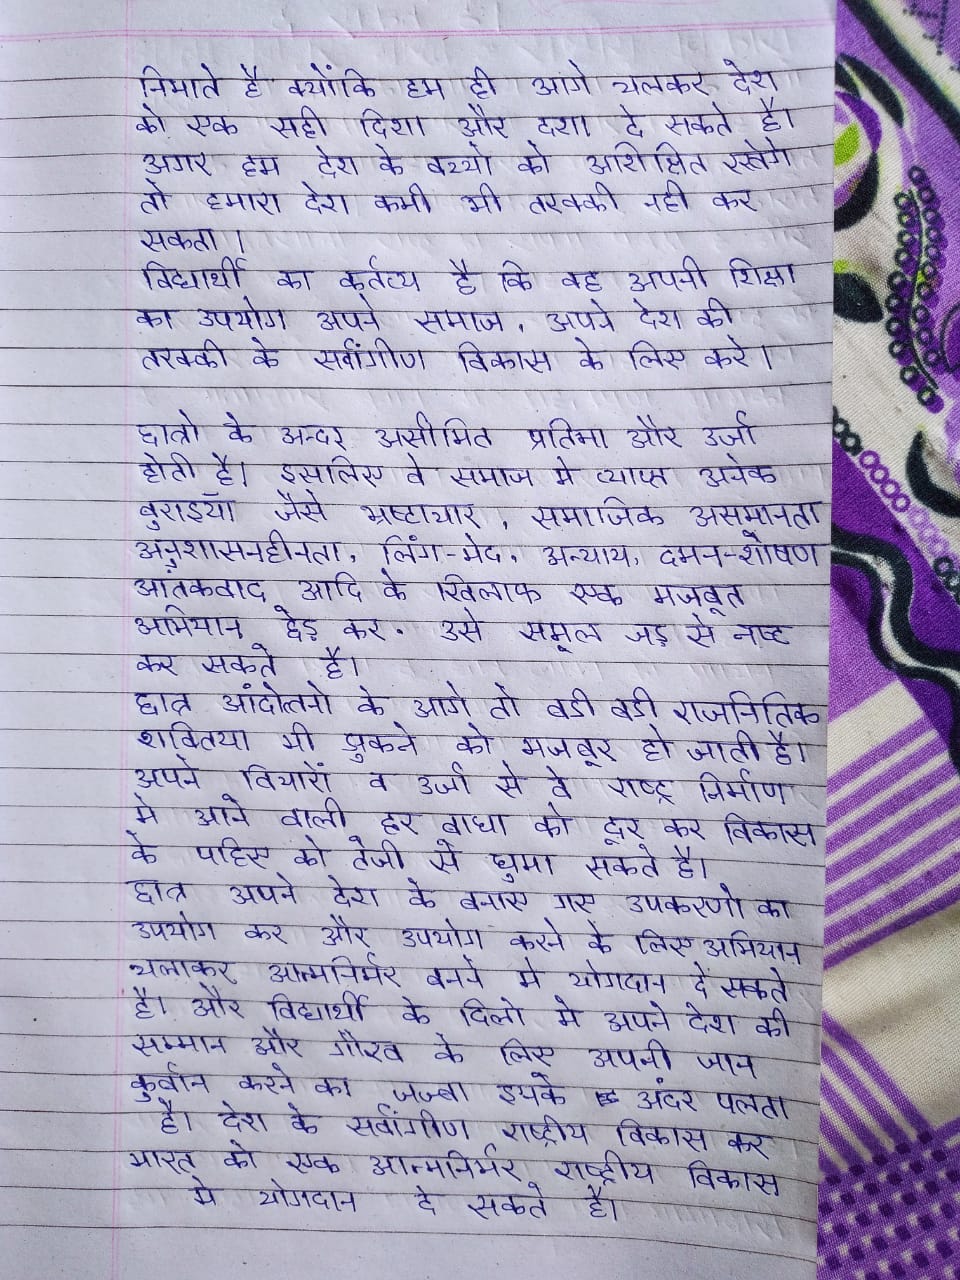 निभाते है क्योंकि हम ही आगे चलकर देश
को एक सही दिशा और दशा दे सकते है।
अगर हम देश के बच्चो को अशिक्षित रखेगे
तो हमारा देश कभी भी तरक्की नही कर
सकता।
विद्यार्थी का कर्तव्य है कि वह अपनी शिक्षा
का उपयोग अपने समाज, अपने देश की
तरक्की के सर्वांगीण विकास के लिए करे।
छात्रो के अन्दर असीमित प्रतिभा और उर्जा
होती है। इसलिए वे समाज मे व्याप्त अनेक
बुराइयाँ जैसे भ्रष्टाचार, समाजिक असमानता
अनुशासनहीनता, लिंग-भेद, अन्याय, दमन-शोषण
आतंकवाद आदि के खिलाफ एक मजबूत
अभियान छेड़ कर. उसे समूल जड़ से नष्ट
कर सकते है।
छात्र आंदोलनो के आगे तो बडी बडी राजनितिक
शक्तिया भी झुकने को मजबूर हो जाती है।
अपने विचारों व उर्जा से वे राष्ट्र निर्माण
मे आने वाली हर बाधा को दूर कर विकास
के पहिए को तेजी से घुमा सकते है।
छात्र अपने देश के बनाए गए उपकरणो का
उपयोग कर और उपयोग करने के लिए अभियान
चलाकर आत्मनिर्भर बनने मे योगदान दे सकते
है। और विद्यार्थी के दिलो मे अपने देश की
सम्मान और गौरव के लिए अपनी जान
कुर्बान करने का जज्बा इनके अंदर पलता
है। देश के सर्वांगीण राष्ट्रीय विकास कर
भारत को एक आत्मनिर्भर राष्ट्रीय विकास
मे योगदान दे सकते है।